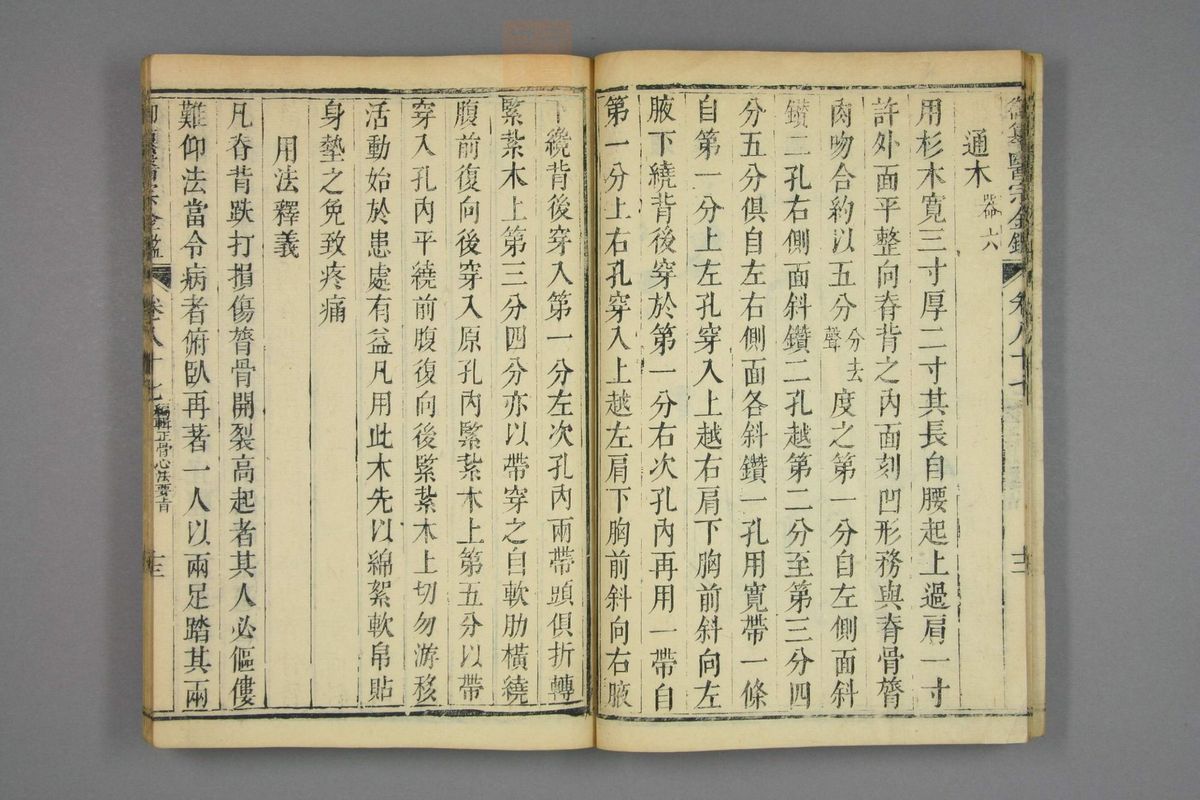 御纂醫宗金鑑 卷八十七 十二
通木 器六
用杉木寬三寸厚二寸其長自腰起上過肩一寸
許外面平整向脊背之內面刻凹形務與脊骨膂
肉吻合約以五分分去聲度之第一分自左側面斜
鑽二孔右側面斜鑽二孔越第二分至第三分四
分五分俱自左右側面各斜鑽一孔用寬帶一條
自第一分上左孔穿入上越右肩下胸前斜向左
腋下繞背後穿於第一分右次孔內再用一帶自
第一分上右孔穿入上越左肩下胸前斜向右腋
下繞背後穿入第一分左次孔內兩帶頭俱折轉
緊紮木上第三分四分亦以帶穿之自軟肋橫繞
腹前復向後穿入原孔內緊紮木上第五分以帶
穿入孔內平繞前腹復向後緊紮木上切勿游移
活動始於患處有益凡用此木先以綿絮軟帛貼
身墊之免致疼痛
用法釋義
凡脊背跌打損傷膂骨開裂高起者其人必傴僂
難仰法當令病者俯臥再著一人以兩足踏其兩
御纂醫宗金鑑 卷八十七 編輯正骨心法要旨 十三